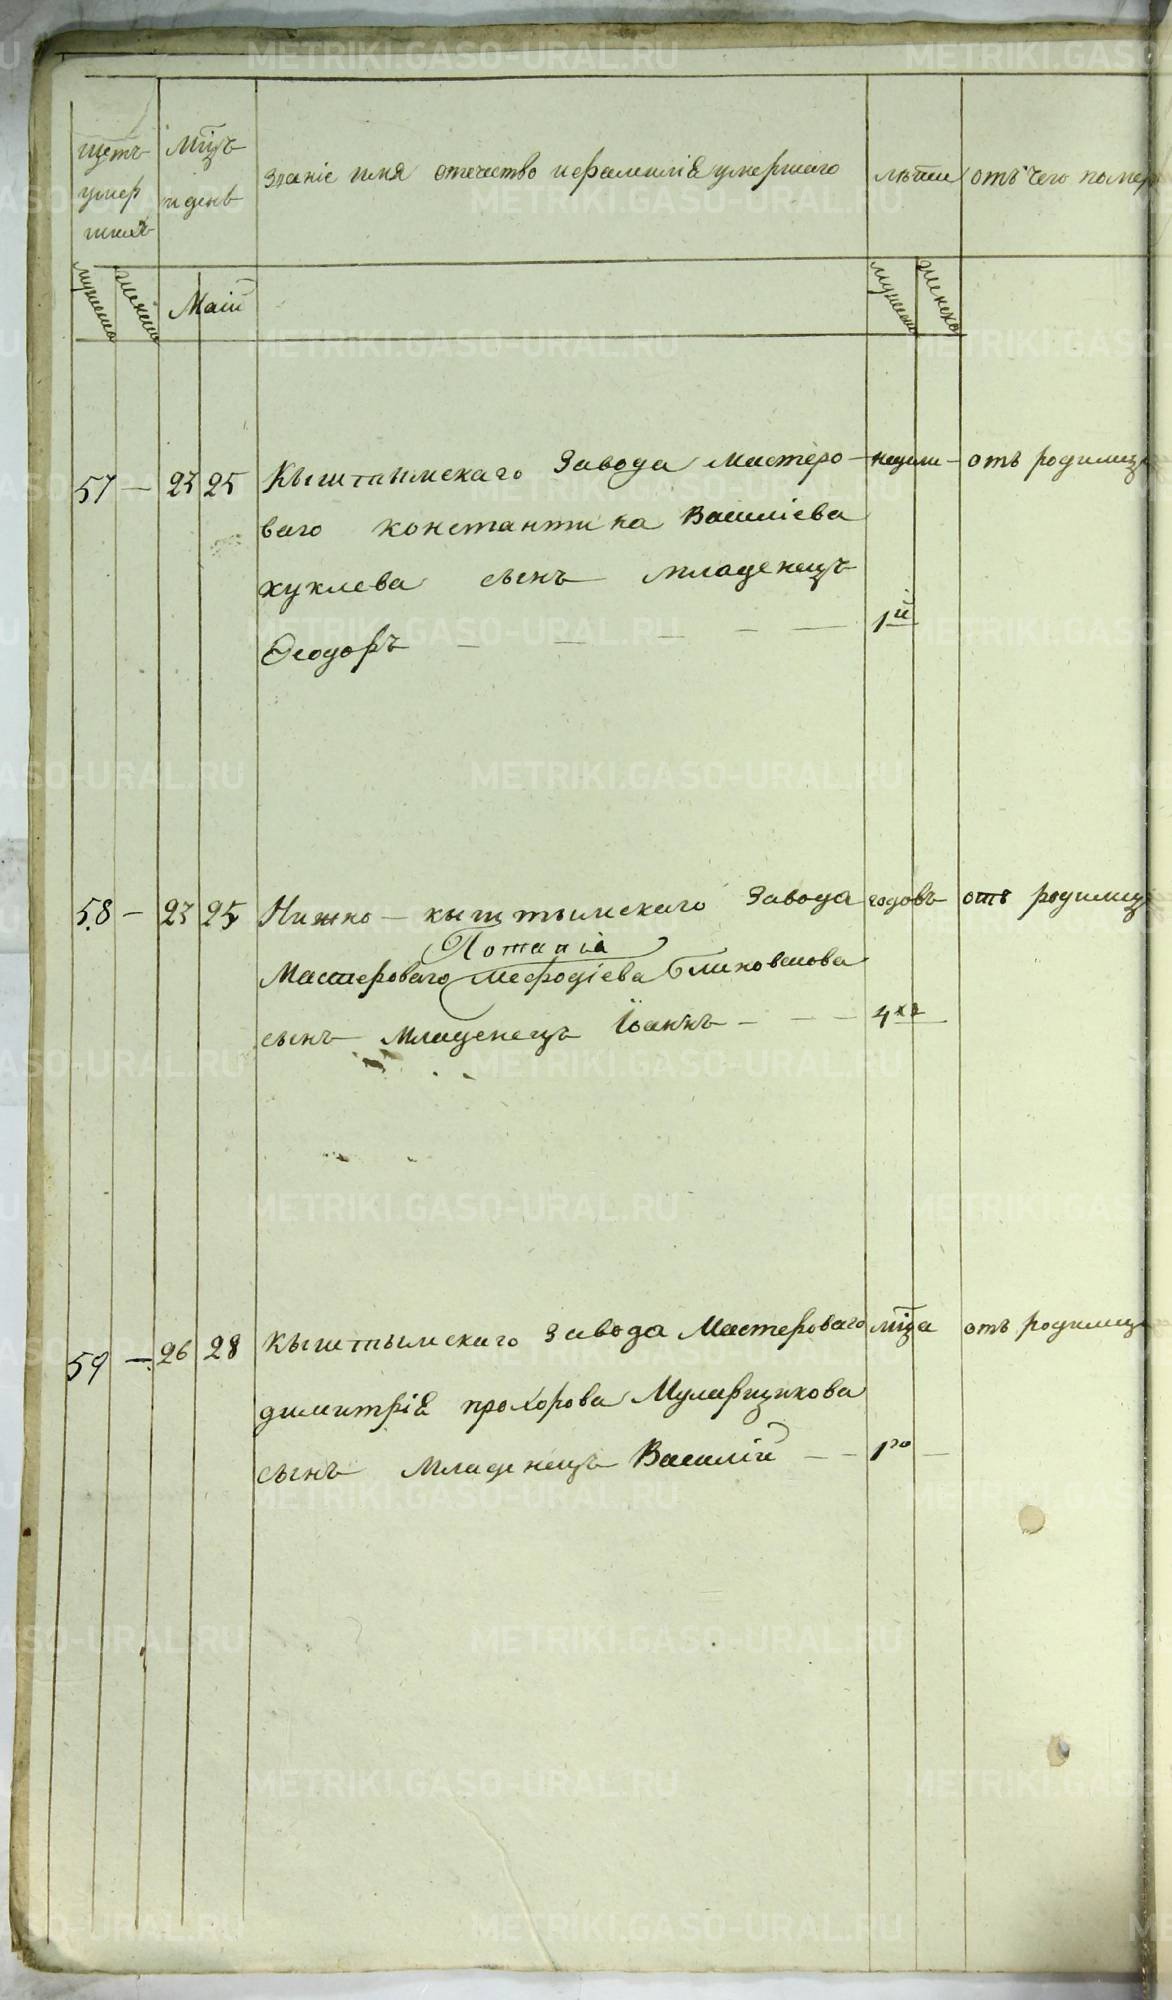 щетъ
умер
шихъ
Мцъ
и день
Званіе имя отечество и фамилія умершаго
лѣта
отъ чего помер
мужеска
женска
Маій
мужеска
женска
57 — 23 25 Кыштымскаго Завода Мастеро — недели — отъ родимца
ваго константина Василіева
куклева сынъ младенецъ
Ѳеодоръ — — — — — 1й
58 — 23 25 Нижно — кыштымскаго Завода годовъ отъ родимца
Потапія
Мастероваго мефодіева Блиновскова
сынъ Младенецъ Іоаннъ — — — 4хъ
59 — 26 28 Кыштымскаго Завода Мастероваго мца отъ родимца
димитрія прохорова Мулафщикова
сынъ Младенецъ Василій — — 1го —
METRIKI.GASO-URAL.RU